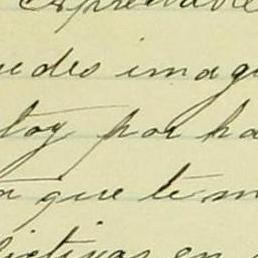 Apreciable
uedes imag
toy por ha
a que te m
jetivas en